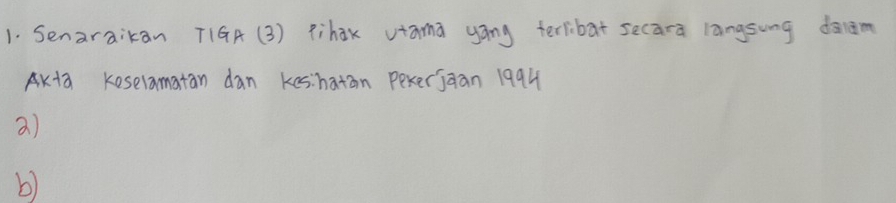 1. Senaraikan TIGA (3) Pihak utama yang terlibat secara langsung dalam
Akta Keselamatan dan kesihatan Pekerjaan 1994
a)
b)